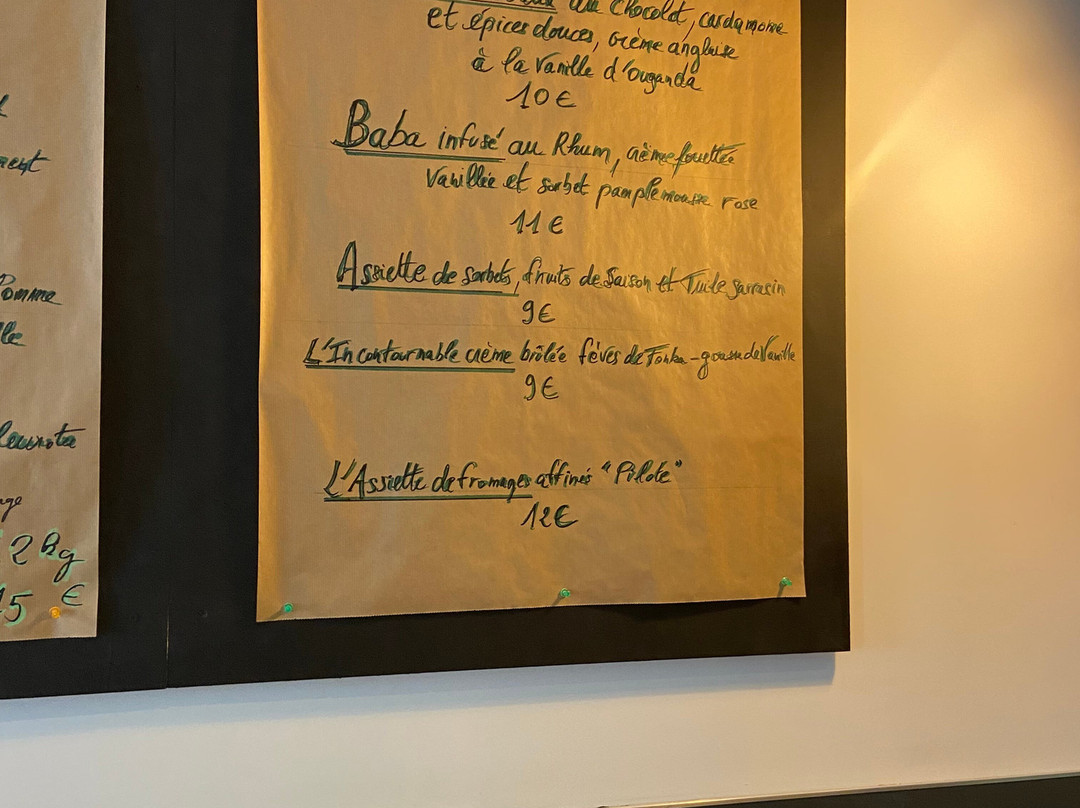 au Chocolat, cardamome
et épices douces, crème anglaise
à la vanille d'Ouganda
10€
Baba infusé au Rhum, crème fouettée
Vanillée et sorbet pamplemousse rose
11€
Assiette de sorbets, fruits de Saison et Tuile sarrasin
9€
L'Incontournable crème brûlée fèves de Tonka - gousse de Vanille
9€
L'Assiette de fromages affinés "Pilote"
12€
Pomme
2 Kg
€